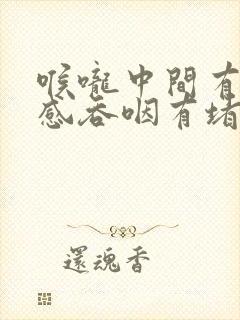 喉嚨中間有
感吞咽有堵
還魂香